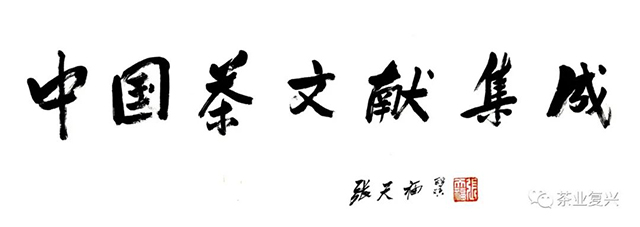 中国茶文献集成
张天福 题
茶业复兴